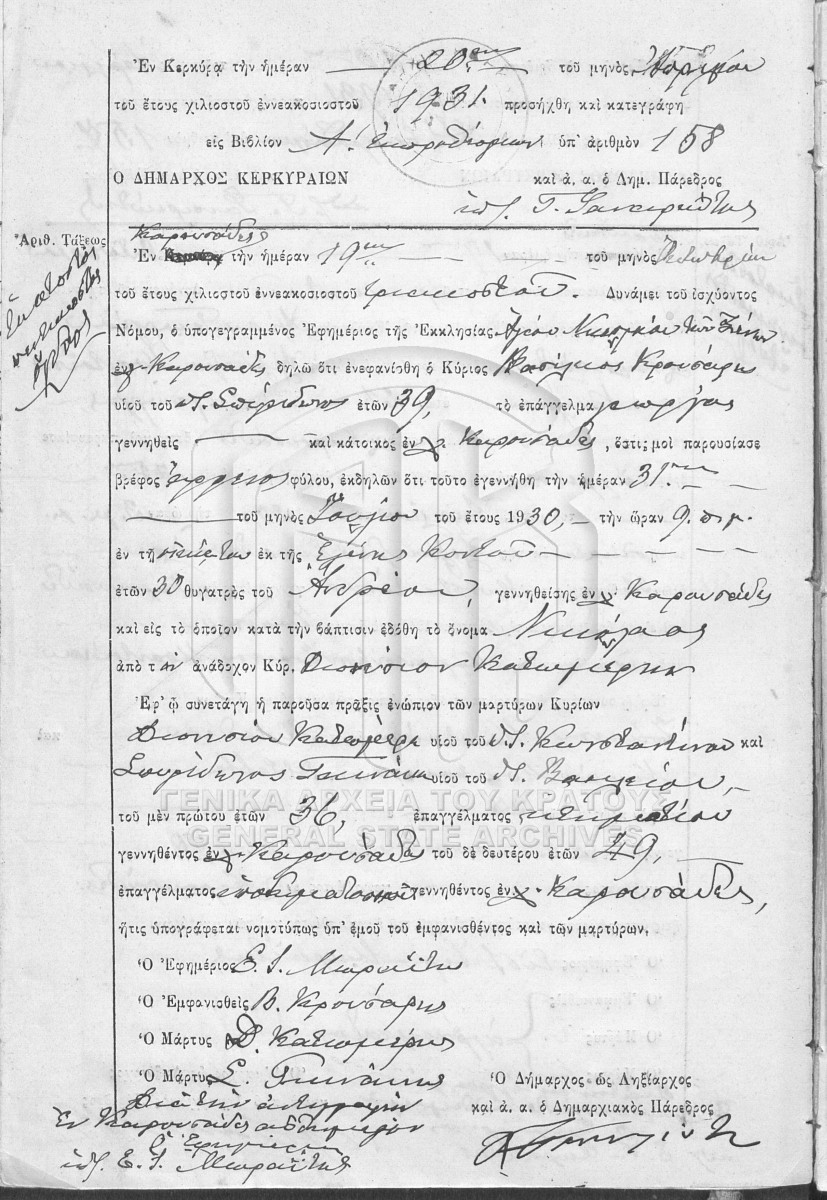 Ἐν Κερκύρᾳ τὴν ἡμέραν 20ην τοῦ μηνὸς Ἀπριλίου
τοῦ ἔτους χιλιοστοῦ ἐννεακοσιοστοῦ 1931. προσήχθη καὶ κατεγράφη
εἰς Βιβλίον Α. ἐκπροθέσμων ὑπ' ἀριθμὸν 158
Ο ΔΗΜΑΡΧΟΣ ΚΕΡΚΥΡΑΙΩΝ καὶ ἀ. α. ὁ Δημ. Πάρεδρος
ὑπ.
Ἀριθ. Τάξεως
Ἑκατοστὸς
Καρουσάδες
Ἐν τὴν ἡμέραν 19ην τοῦ μηνὸς Ὀκτωβρίου
τοῦ ἔτους χιλιοστοῦ ἐννεακοσιοστοῦ τριακοστοῦ. Δυνάμει τοῦ ἰσχύοντος
Νόμου, ὁ ὑπογεγραμμένος Ἐφημέριος τῆς Ἐκκλησίας Ἁγίου Νικολάου τῶν Ξένων
ἐν Καρουσάδες δηλῶ ὅτι ἐνεφανίσθη ὁ Κύριος Βασίλειος Κρουσάρης
υἱοῦ τοῦ π. Σπυρίδωνος ἐτῶν 39, τὸ ἐπάγγελμα γεωργὸς
γεννηθεὶς καὶ κάτοικος ἐν χ. Καρουσάδες, ὅστις μοὶ παρουσίασε
βρέφος ἄρρενος φύλου, ἐκδηλῶν ὅτι τοῦτο ἐγεννήθη τὴν ἡμέραν 31ην
τοῦ μηνὸς Ἰουλίου τοῦ ἔτους 1930, τὴν ὥραν 9. π.μ.
ἐν τῇ οἰκίᾳ του ἐκ τῆς Ἑλένης Κοντοῦ
ἐτῶν 30 θυγατρὸς τοῦ Ἀνδρέου, γεννηθείσης ἐν χ. Καρουσάδες
καὶ εἰς τὸ ὁποῖον κατὰ τὴν βάπτισιν ἐδόθη τὸ ὄνομα Νικόλαος
ἀπὸ τὸν ἀνάδοχον Κύρ. Διονύσιον Κατωμέρην
Ἐφ' ᾧ συνετάγη ἡ παροῦσα πρᾶξις ἐνώπιον τῶν μαρτύρων Κυρίων
Διονυσίου Κατωμέρη υἱοῦ τοῦ π. Κωνσταντίνου καὶ
Σπυρίδωνος Γκινάκη υἱοῦ τοῦ π. Βασιλείου,
ΓΕΝΙΚΑ ΑΡΧΕΙΑ ΤΟΥ ΚΡΑΤΟΥΣ
τοῦ μὲν πρώτου ἐτῶν 36, ἐπαγγέλματος κτηματίου
GENERAL STATE ARCHIVES
γεννηθέντος ἐν χ. Καρουσάδες τοῦ δὲ δευτέρου ἐτῶν 49,
ἐπαγγέλματος ὑποδηματοποιοῦ γεννηθέντος ἐν χ. Καρουσάδες,
ἥτις ὑπογράφεται νομοτύπως ὑπ' ἐμοῦ τοῦ ἐμφανισθέντος καὶ τῶν μαρτύρων.
Ὁ Ἐφημέριος Ε. Ι. Μωραΐτης
Ὁ Ἐμφανισθεὶς Β. Κρουσάρης
Ὁ Μάρτυς Δ. Κατωμέρης
Ὁ Μάρτυς Σ. Γκινάκης
Ὁ Δήμαρχος ὡς Ληξίαρχος
καὶ ἀ. α. ὁ Δημαρχιακὸς Πάρεδρος
Διὰ τὴν ἀντιγραφὴν
Ἐν Καρουσάδες αὐθημερὸν
Ὁ Ἐφημέριος
ὑπ. Ε. Ι. Μωραΐτης